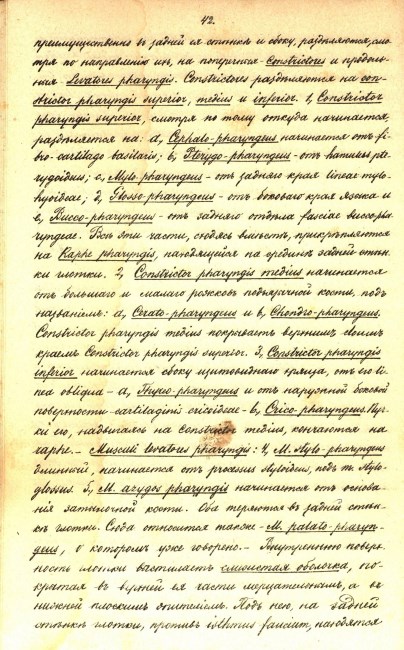 42.
преимущественно въ задней ея стѣнкѣ и сбоку, раздѣляются, смо-
тря по направленію ихъ, на поперечные - Constrictores и продоль-
ные - Levatores pharyngis. Constrictores раздѣляются на con-
strictor pharyngis superior, medius и inferior. 1, Constrictor
pharyngis superior, смотря по тому откуда начинается,
раздѣляется на: a, Cephalo-pharyngeus начинается отъ fi-
bro-cartilago basilaris; b, Pterygo-pharyngeus - отъ hamulus pte-
rygoideus; c, Mylo-pharyngeus - отъ задняго края lineae mylo-
hyoideae; d, Glosso-pharyngeus - отъ боковаго края языка и
e, Bucco-pharyngeus - отъ задняго отдѣла fasciae buccopha-
ryngeae. Всѣ эти части, сходясь вмѣстѣ, прикрѣпляются
на Raphe pharyngis, находящейся на срединѣ задней стѣн-
ки глотки. 2, Constrictor pharyngis medius начинается
отъ большаго и малаго рожковъ подъязычной кости, подъ
названіемъ: a, Cerato-pharyngeus и b, Chondro-pharyngeus.
Constrictor pharyngis medius покрываетъ верхнимъ своимъ
краемъ Constrictor pharyngis superior. 3, Constrictor pharyngis
inferior начинается сбоку щитовиднаго хряща, отъ его li-
nea obliqua - a, Thyreo-pharyngeus и отъ наружной боковой
поверхности cartilaginis cricoideae - b, Crico-pharyngeus. Пуч-
ки его, надвигаясь на constrictor medius, кончаются на
raphe. - Musculi levatores pharyngis: 4, M. Stylo-pharyngeus
длинный, начинается отъ processus styloideus, подъ m. stylo-
glossus. 5, M. azygos pharyngis начинается отъ основа-
нія затылочной кости. Оба теряются въ задней стѣн-
кѣ глотки. Сюда относится также - M. palato-pharyn-
geus, о которомъ уже говорено. - Внутреннюю поверх-
ность глотки выстилаетъ слизистая оболочка, по-
крытая въ верхней ея части мерцательнымъ, а въ
нижней плоскимъ эпителіемъ. Подъ нею, на задней
стѣнкѣ глотки, противъ isthmus faucium, находятся